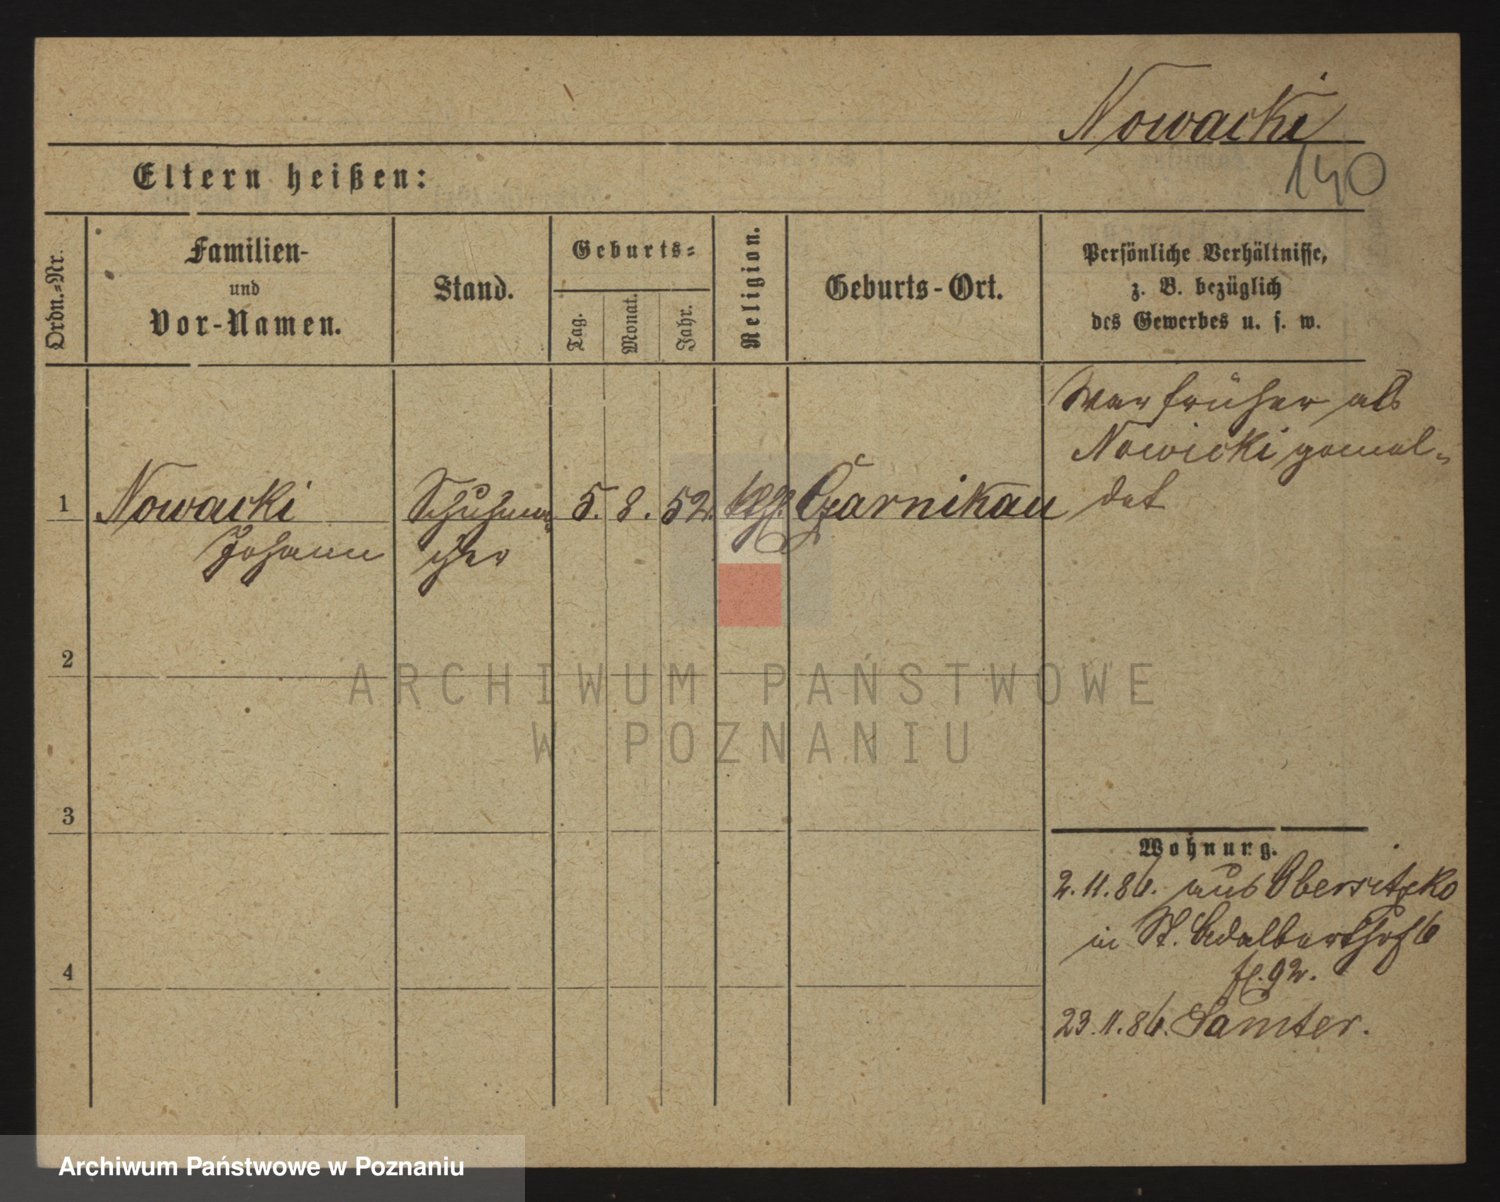 Nowacki
140
Eltern heißen:
Ordn.-Nr.
Familien-
und
Vor-Namen.
Stand.
Geburts-
Tag.
Monat.
Jahr.
Religion.
Geburts-Ort.
Persönliche Verhältnisse,
z. B. bezüglich
des Gewerbes u. s. w.
War früher als
Nowicki gemel-
det
1 Nowacki Schuhma- 5. 8. 52. kth. Czarnikau
Johann cher
2
3
4
ARCHIWUM PAŃSTWOWE
W POZNANIU
Wohnung.
2.11.86. aus Obersitzko
in St. Adalbertstr 6
23.11.86. Samter.
Archiwum Państwowe w Poznaniu